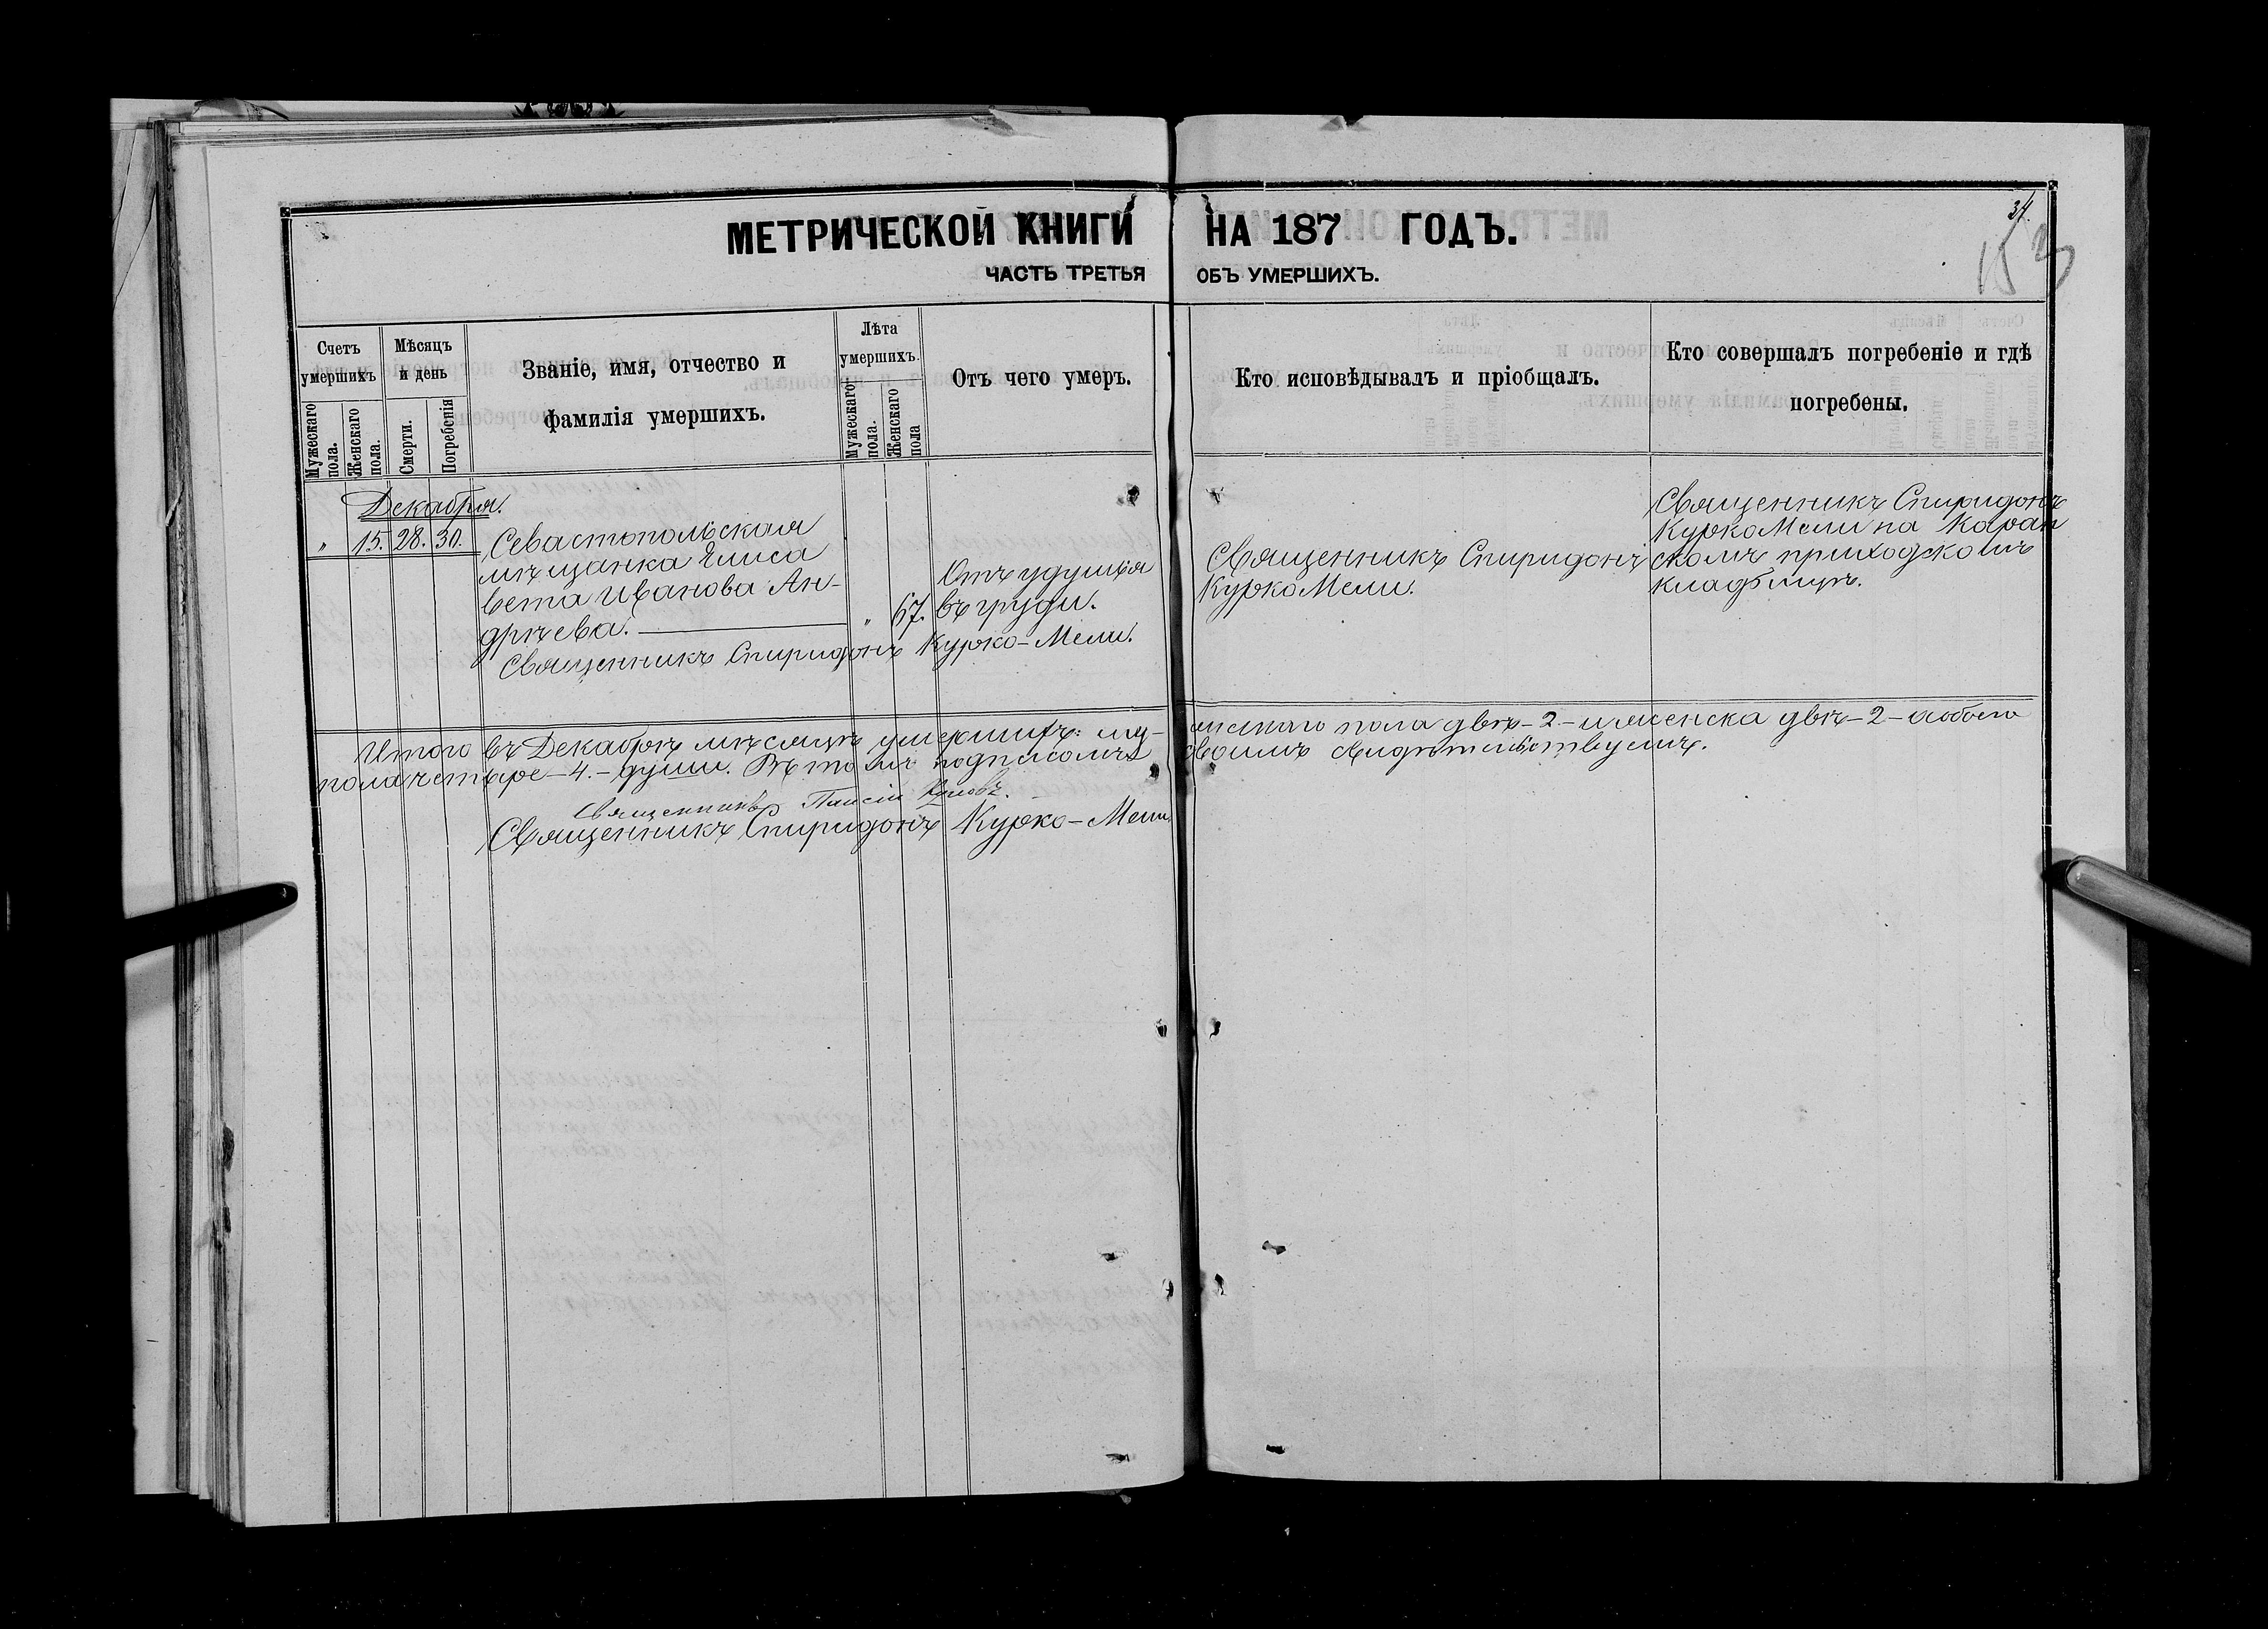 МЕТРИЧЕСКОЙ КНИГИ НА 187 ГОДЪ.
ЧАСТЬ ТРЕТЬЯ ОБЪ УМЕРШИХЪ.
34.
Счетъ умершихъ
Мужескаго пола.
Женскаго пола.
Мѣсяцъ и день
Смерти.
Погребенія
Званіе, имя, отчество и
фамилія умершихъ.
Лѣта умершихъ.
Мужескаго пола.
Женскаго пола
Отъ чего умеръ.
Кто исповѣдывалъ и пріобщалъ.
Кто совершалъ погребеніе и гдѣ
погребены.
Декабря.
„ 15. 28. 30.
Севастопольская
мѣщанка Елиса
вета Иванова Ан-
дрѣева.
„ 67.
Отъ удушья
въ груди.
Священникъ Спиридонъ
КуркоМели.
Священникъ Спиридонъ
КуркоМели на Каран
скомъ приходскомъ
кладбищѣ.
Священникъ Спиридонъ Курко-Мели.
Итого въ Декабрѣ мѣсяцѣ умершихъ: му- жескаго пола двѣ-2-и женска двѣ-2-а обоего
пола четыре-4.-души. Въ томъ подписомъ своимъ свидѣтельствуемъ.
Священникъ Паисій
Священникъ Спиридонъ Курко-Мели.